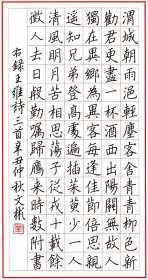 渭城朝雨浥輕塵客舍青青柳色新
勸君更盡一杯酒西出陽關無故人
獨在異鄉為異客每逢佳節倍思親
遙知兄弟登高處遍插茱萸少一人
清風明月苦相思蕩子從戎十載餘
徵人去日殷勤囑歸雁來時數附書
右錄王維詩三首辛丑仲秋文彬